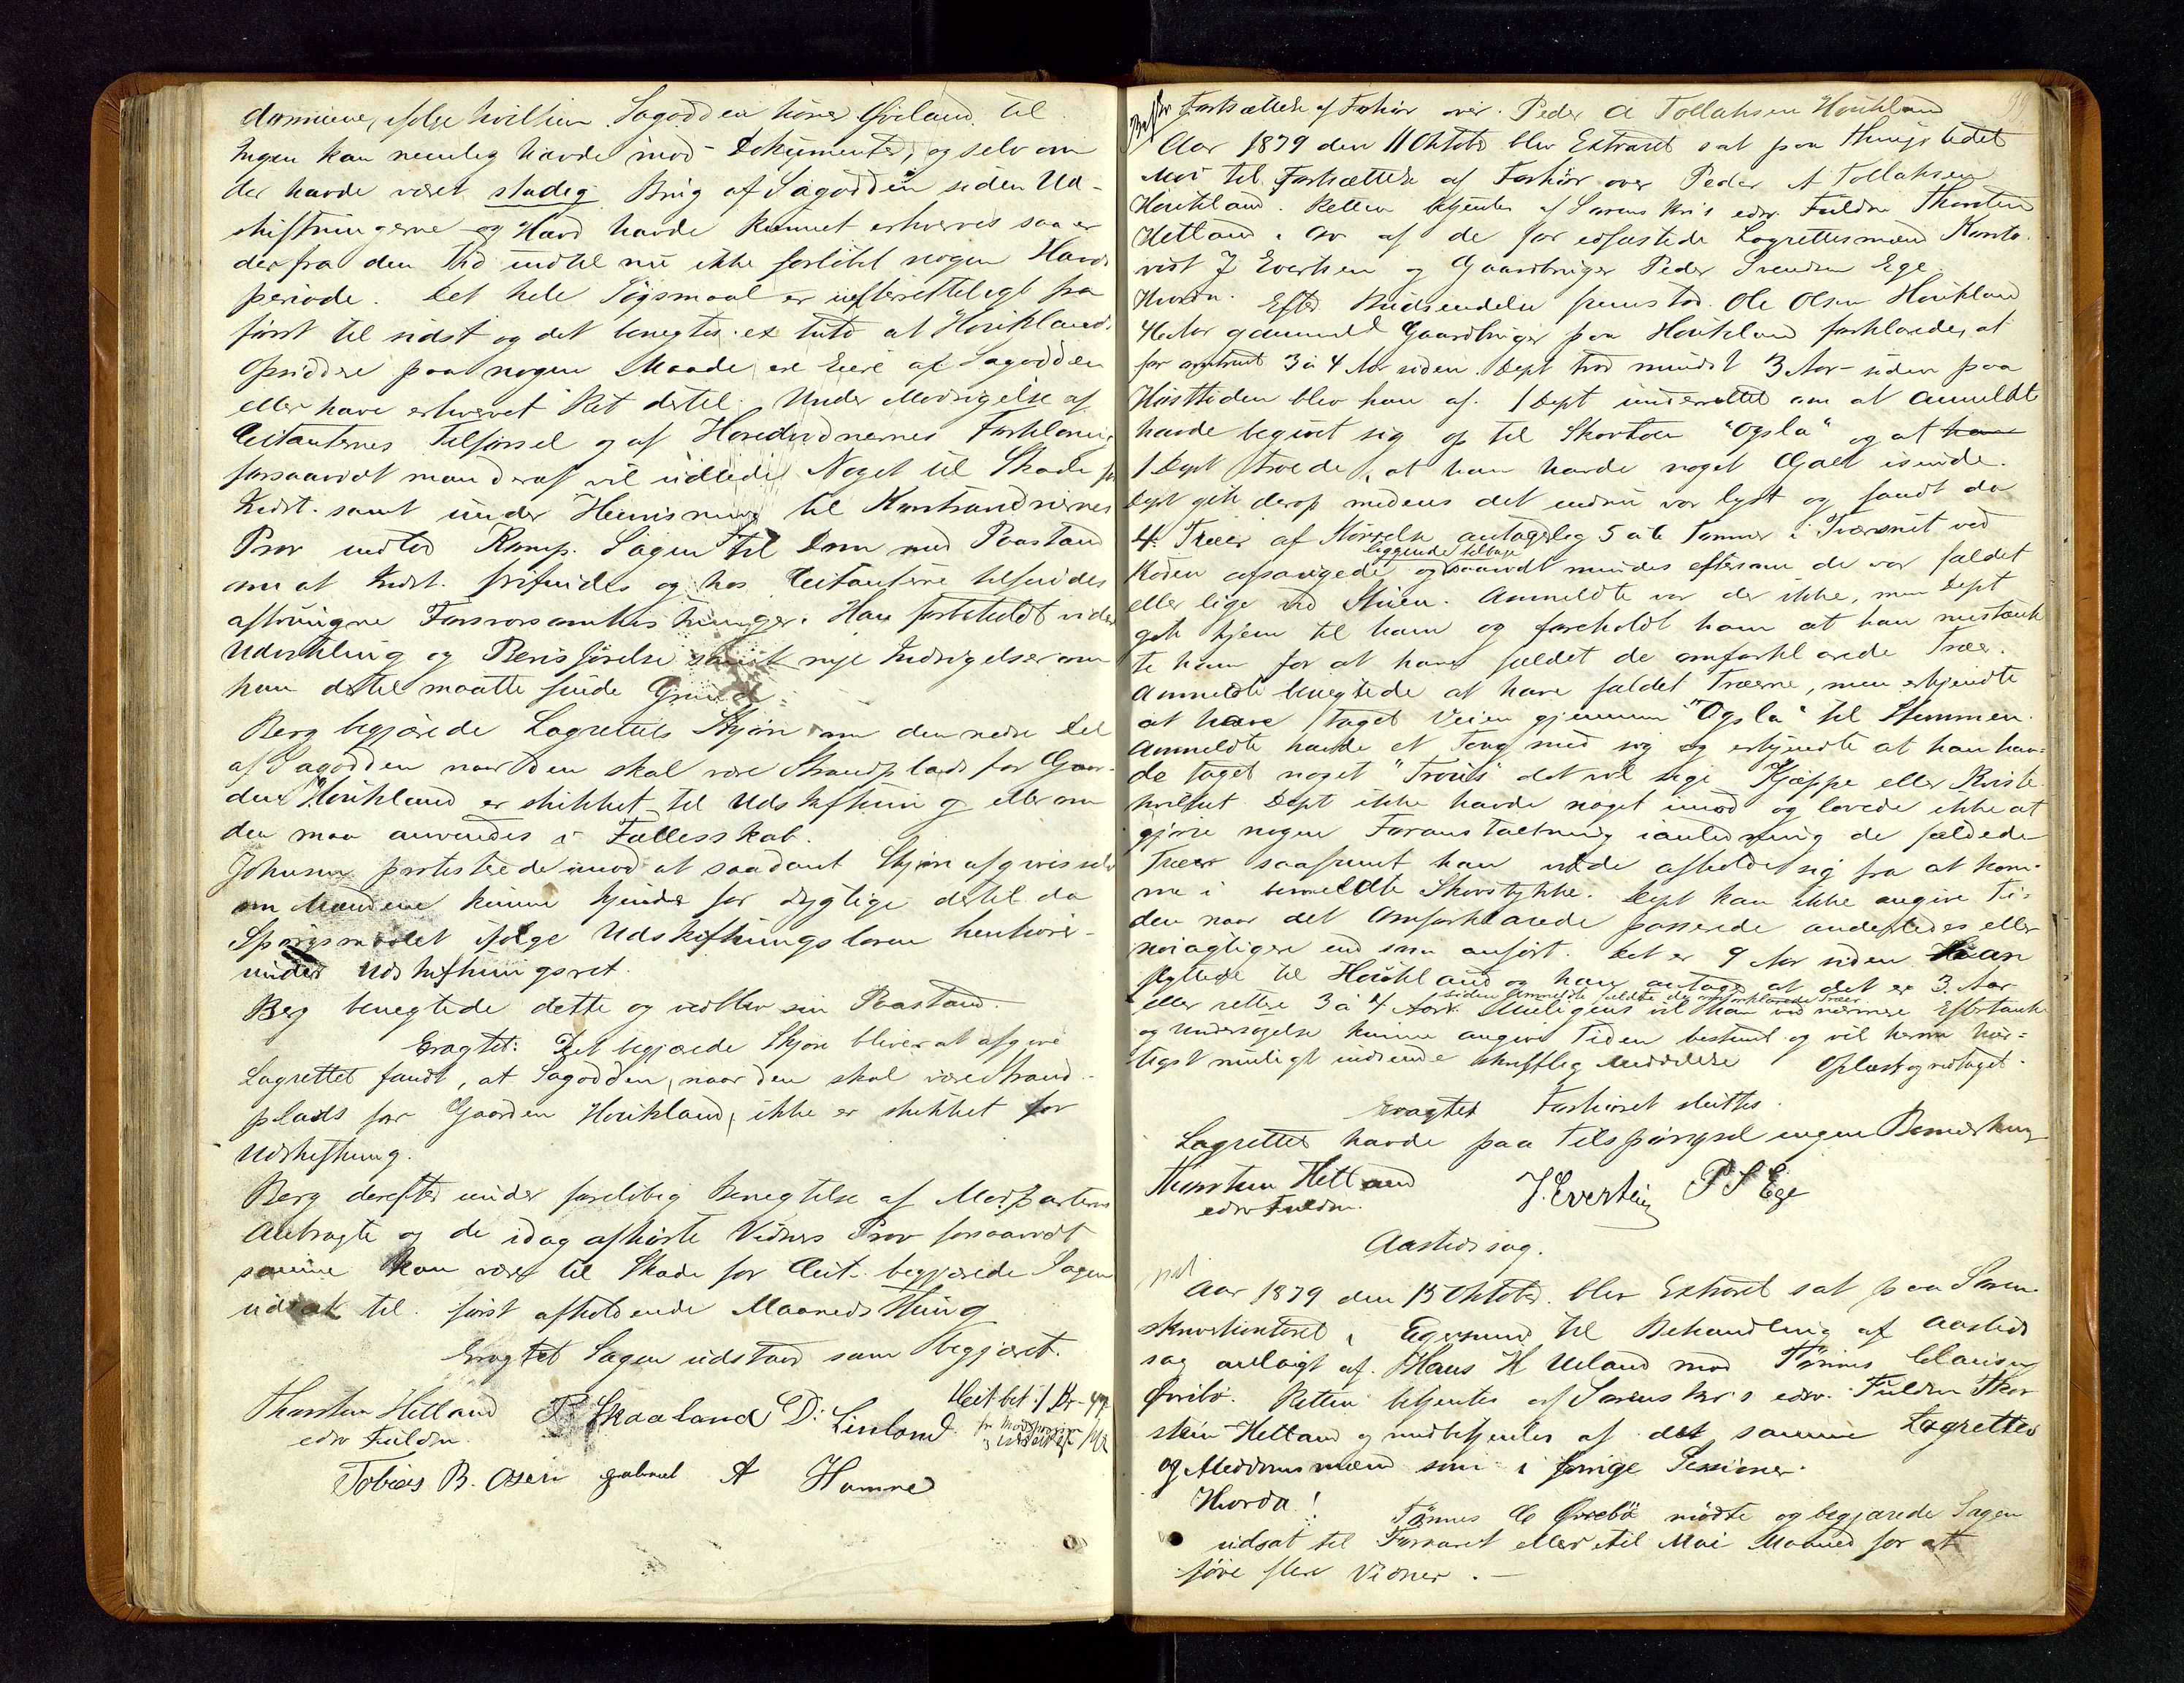 dommene, ifølge hvilken Sagodden hører Øveland til
Ingen kan nemlig hævde mod Dokumenter, og selv om
der havde været stadig Brug af Sagodden siden Ud-
skiftningerne og Hævd havde kunnet erhverves saa er
der fra den Tid indtil nu ikke forløbet nogen Hævds
periode. Det hele Søgsmaal er uefterretteligt fra
først til sidst og det benegtes ex tuto at Høukland
Opsiddere paa nogen Maade er Eiere af Sagodden
eller have erhvervet Ret dertil. Under Modsigelse af
Citanternes Tilførsel og af Hovedvidnernes Forklaring
forsaavidt man deraf vil udlede Noget til Skade for
Indst. samt under Henvisning til Kontravidnernes
Prov indlod Komp. Sagen til Dom med Paastand
om at Indst. frifindes og hos Citanterne tilfindes
aftvungne Forsvarsomkostninger. Han forbeholdt videre
Udvikling og Bevisførelse samt nye Indsigelser om
han dertil maatte finde Grund.
Berg begjærede Lagrettets Skjøn om den nedre Del
af Sagodden naar den skal være Strandplads for Gaar-
den Høukland er skikket til Udskiftning eller om
den maa anvendes i Fællesskab.
Johnsen protesterede imod at saadant Skjøn afgives selv
om Mændene kunne kjendes for dygtige dertil da
Spørgsmaalet ifølge Udskiftningsloven henhører
under Udskiftningsret.
Berg benegtede dette og vedblev sin Paastand.
Eragtet: Det begjærede Skjøn bliver at afgive
Lagrettet fandt, at Sagodden, naar den skal være Strand-
plads for Gaarden Høukland, ikke er skikket for
Udskiftning.
Berg derefter under foreløbig Benegtelse af Modpartens
Anbragte og de idag afhørte Vidners Prov forsaavidt
samme kan være til Skade for Citt. begjærede Sagen
udsat til først afholdende Maanedsthing
Eragtet Sagen udstaar som begjæret.
Thorsten Hetland P. Skaaland D. Linland
edsv Fuldm.
Tobias B. Osen gabriel A Hamre
Fortsættelse af Forhør over Peder A Tollaksen Høukland
Aar 1879 den 11 Oktober blev Extraret sat paa Thingstedet
Moi til Fortsættelse af Forhør over Peder A Tollaksen
Høukland. Retten betjentes af Sorenskr's edsv. Fuldm Thorsten
Hetland av af de før edfæstede Lagrettesmænd Konto-
rist J Evertsen og Gaardbruger Peder Svendsen Ege
Hvorda. Efter Budsendelse fremstod Ole Olsen Høukland
46 Aar gammel Gaardbruger paa Høukland forklarede, at
for omtrent 3 à 4 Aar siden. Dept tror mindst 3 Aar siden paa
Høsttiden blev han af 1 Dept underrettet om at Anmeldte
havde begivet sig op til Skovtoen "Ogsla" og at
1 Dept troede, at han havde noget Galt isinde.
Dept gik derop medens det endnu var lyst og fandt da
4 Træer af Størrelse antagelig 5 à 6 Tommer i Tværsnit ved
liggende tilbage
Roden afsaugede og saavidt mindes eftersom de var fældet
eller lige ved Stuen. Anmeldte var der ikke, men Dept
gik hjem til ham og foreholdt ham at han mistænk-
te ham for at have fældet de omforklarede Træer.
Anmeldte benegtede at have fældet Træerne, men erkjendte
at have taget Veien gjennem "Ogsla" til Stemmen.
Anmeldte havde et Toug med sig og erkjendte at han hav-
de taget noget "Trøus" det vil sige Kjæppe eller Kviste
hvilket Dept ikke havde noget imod og lovede ikke at
gjøre nogen Foranstaltning ianledning de fældede
Træer saafremt han vilde afholde sig fra at kom-
me i bemeldte Skovstykke. Dept kan ikke angive Ti-
den naar det Omforklarede passerede anderledes eller
nøiagtigere end som anført. Det er 9 Aar siden han
flyttede til Høukland og han antager at det er 3 Aar
siden Anmeldte fældte de omforklarede Træer
eller rettere 3 à 4 Aar. Muligens vil han ved nærmere Eftertanke
og Undersøgelse kunne angive Tiden bestemt og vil herom hur-
tigst muligt indsende skriftlig Meddelelse Oplæst og vedtaget.
Eragtet Forhøret sluttes.
Lagrettet havde paa Tilspørgsel ingen Bemerkning
Thorsten Hetland J. Evertsen P S Ege
edsv Fuldm.
Aastedssag.
Aar 1879 den 13 Oktober blev Extraret sat paa Soren-
skriverkontoret i Egersund til Behandling af Aasteds
sag anlagt af Hans H Ueland mod Tønnes Clausen
Ørebø. Retten betjentes af Sorenskr's edsv. Fuldm Thor
stein Hetland og medbetjentes af det samme Lagrettes
og Meddomsmænd som i forrige Sessioner.
Hvorda!
Tønnes C Ørebø mødte og begjærede Sagen
udsat til Foraaret eller til Mai Maaned for at
føre flere Vidner.